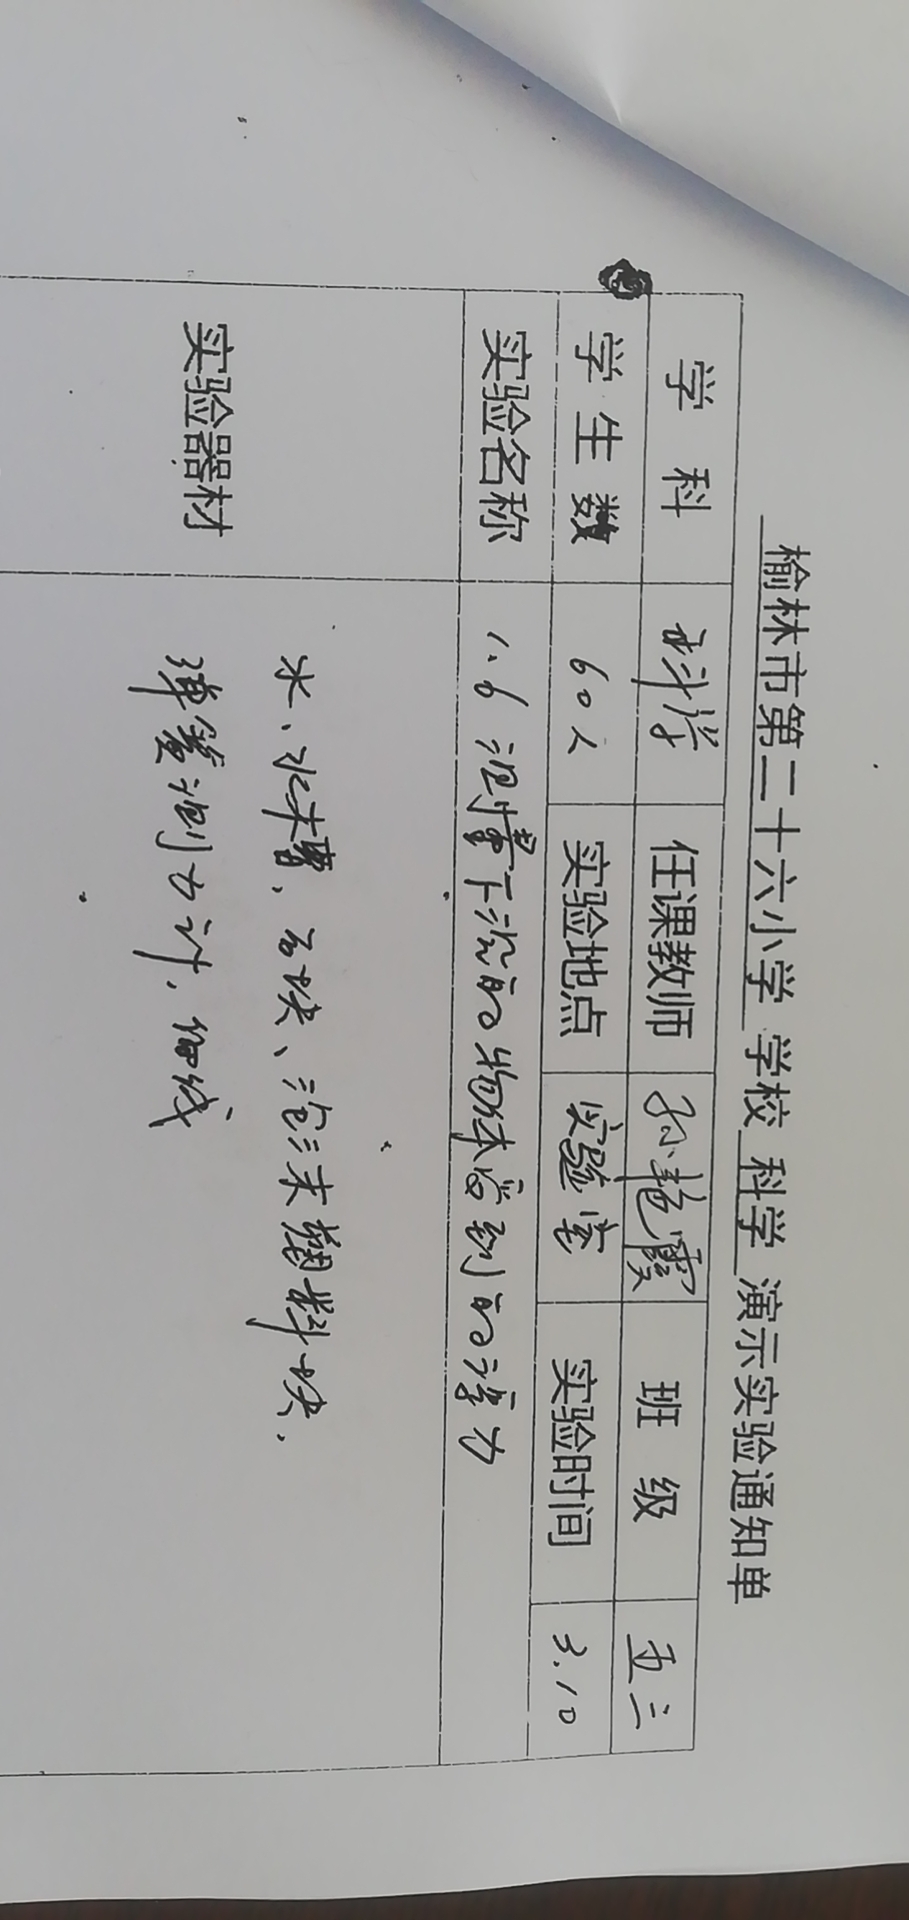 榆林市第二十六小学 学校 科学 演示实验通知单
学科 科学 任课教师 孙艳霞 班级 五三
学生数 60人 实验地点 实验室 实验时间 3.10
实验名称 1.6 测量下沉的物体受到的浮力
实验器材 水、水槽、石块、泡沫塑料块、
弹簧测力计，细线